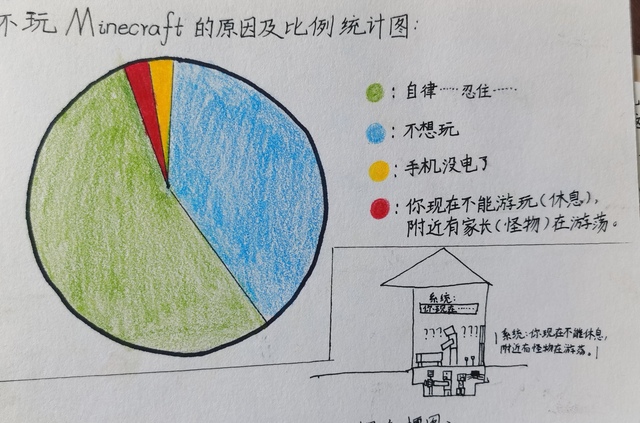 不玩 Minecraft 的原因及比例统计图:
: 自律……忍住……
: 不想玩
: 手机没电了
: 你现在不能游玩(休息),
附近有家长(怪物)在游荡。
系统:
你现在……
??? ???
系统:你现在不能休息,
附近有怪物在游荡。